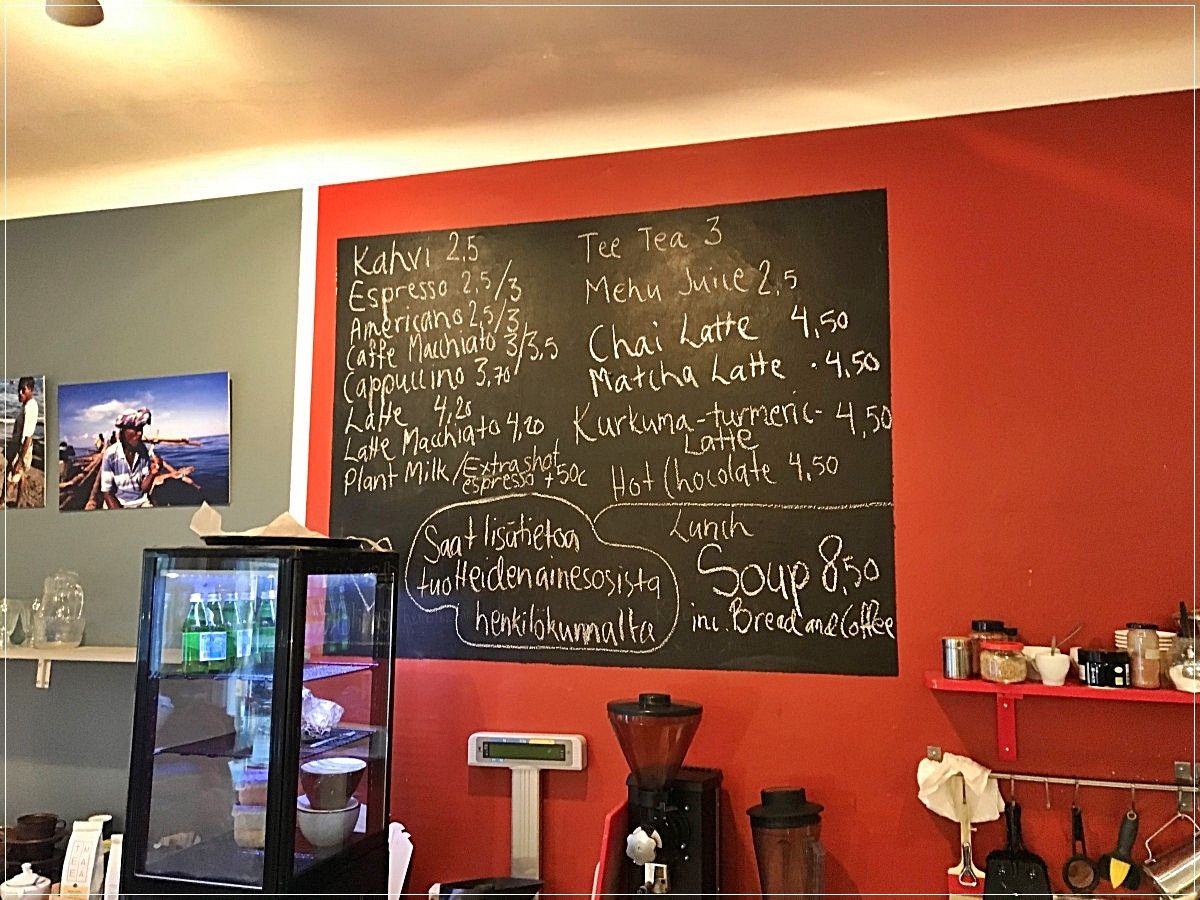 Kahvi 2,5
Espresso 2,5/3
Americano 2,5/3
Caffe Macchiato 3/3,5
Cappuccino 3,70
Latte 4,20
Latte Macchiato 4,20
Plant Milk / Extra shot
espresso +50c
Tee Tea 3
Mehu Juice 2,5
Chai Latte 4,50
Matcha Latte · 4,50
Kurkuma-turmeric- 4,50
Latte
Hot Chocolate 4,50
Saat lisätietoa
tuotteiden ainesosista
henkilökunnalta
Lunch
Soup 8,50
inc. Bread and Coffee